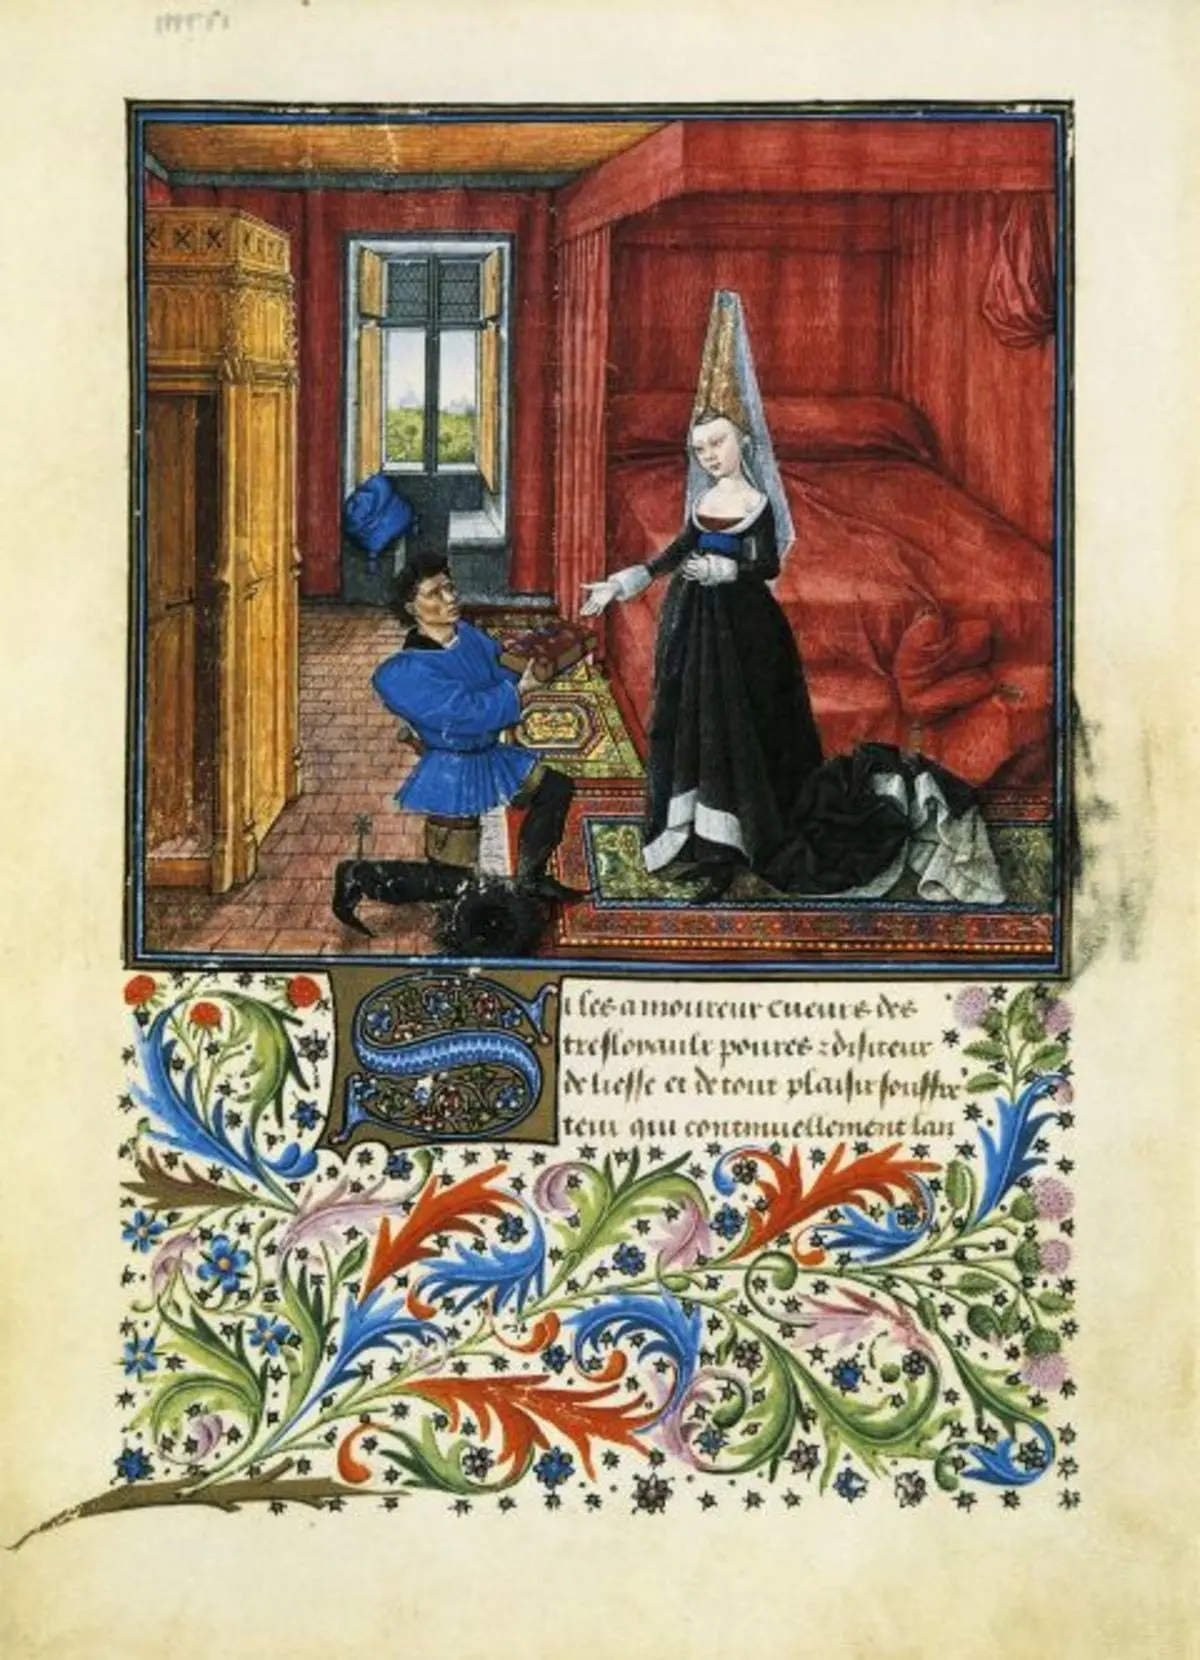 Si les amoureux cueurs des
tresloyaulx poures & disiteux
de liesse et de tout plaisir souffre
teux qui continuellement lan